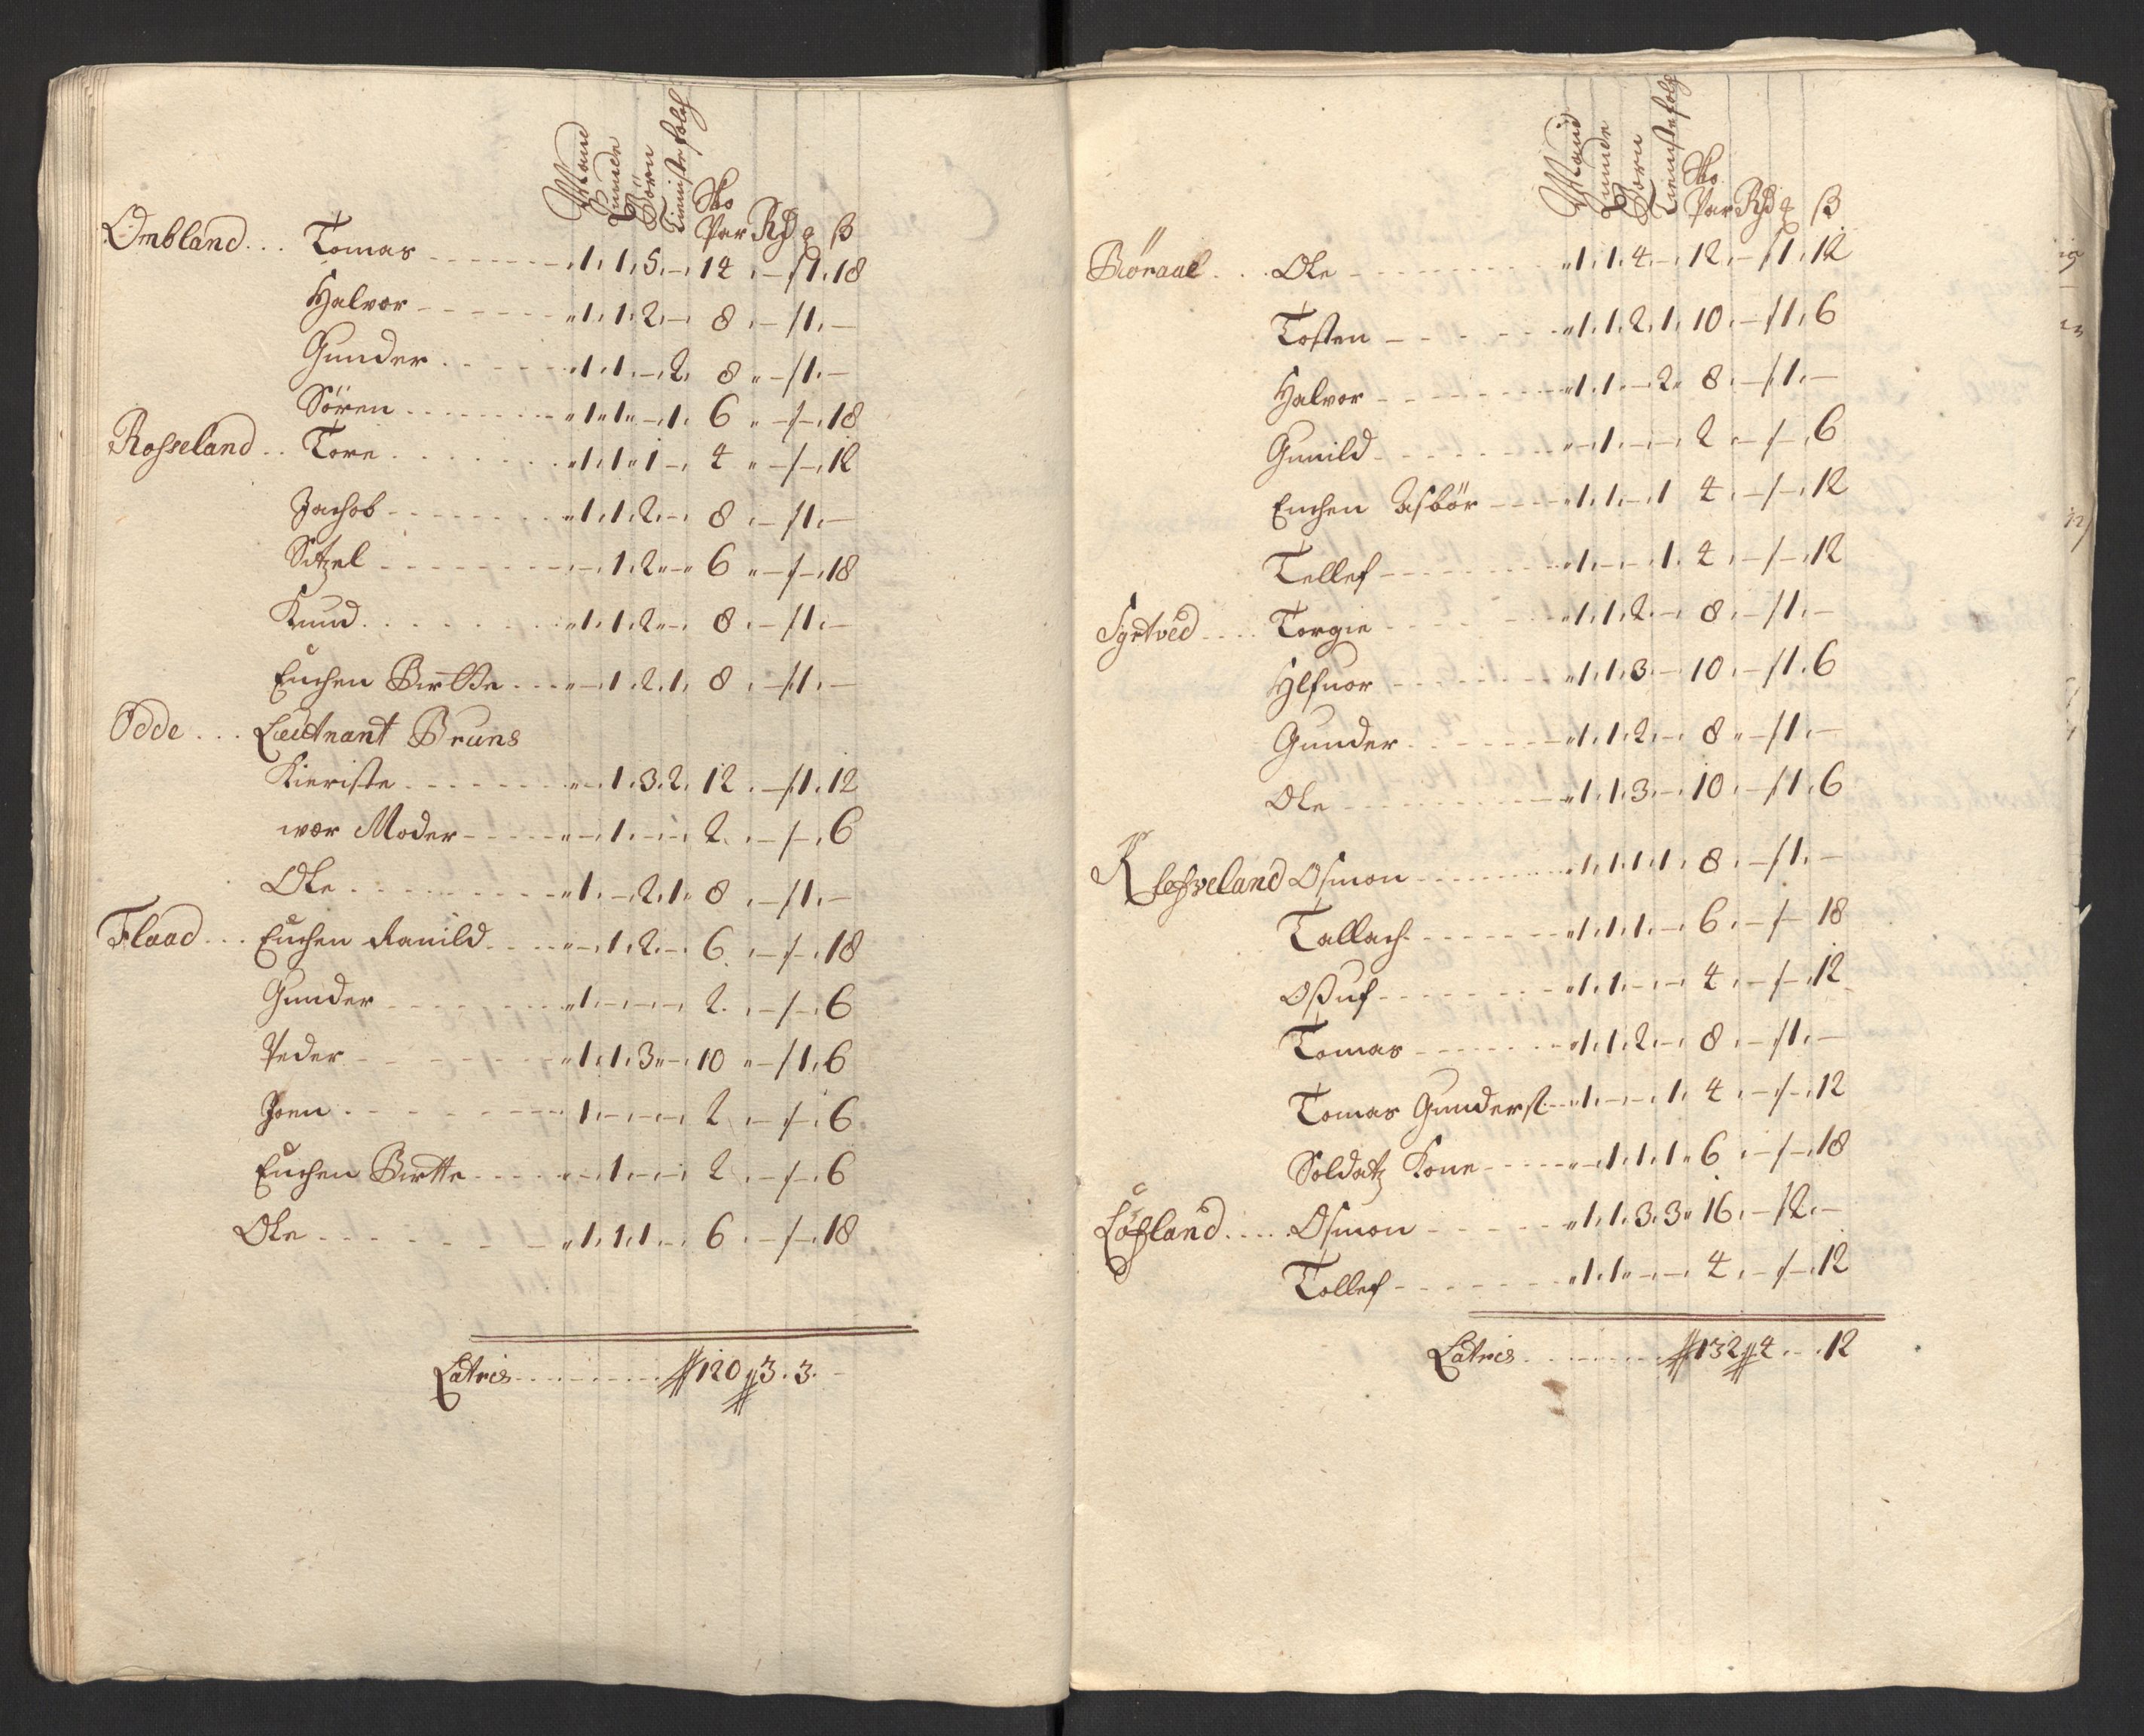 Mand Quinde Börn Tieniste folch Sko Par Rd ß
Ombland... Tomas - - - 1. 1. 5. - 14. - /1. 18
Halvor - - - 1. 1. 2. - 8. - /1. -
Gunder - - - 1. 1. - 2. 8. - /1. -
Sören - - - 1. 1. - 1. 6. - / - 18
Rosseland.. Tore - - - 1. 1. 1 - 4. - / - 12
Jachob - - - 1. 1. 2. - 8. - /1. -
Sitzel - - - - 1. 2. - 6. - / - 18
Knud - - - 1. 1. 2. - 8. - /1. -
Enchen Birtte - - - - 1. 2. 1. 8. - /1. -
Odde... Leutnant Bruns
Kieriste - - - - 1. 3. 2. 12. - /1. 12
wor Moder - - - - 1. - - 2. - / - 6
Ole - - - 1. - 2. 1. 8. - /1. -
Flaad... Enchen Ranild - - - - 1. 2. - 6. - / - 18
Gunder - - - 1. - - - 2. - / - 6
Peder - - - 1. 1. 3. - 10. - /1. 6
Joen - - - 1. - - - 2. - / - 6
Enchen Birtte - - - - 1. - - 2. - / - 6
Ole - - - 1. 1. 1. - 6. - / - 18
Latris - - - 120 3. 3. -
Mand Quinde Börn Tieniste folch Sko Par Rd ß
Böraal... Ole - - - 1. 1. 4. - 12. - /1. 12
Tosten - - - 1. 1. 2. 1. 10. - /1. 6
Halvor - - - 1. 1. - 2. 8. - /1. -
Gunild - - - - 1. - - 2. - / - 6
Enchen Asbör - - - 1. 1. - 1 4. - / - 12
Tellef - - - 1. - - 1. 4. - / - 12
Syrtved.... Torgie - - - 1. 1. 2. - 8. - /1. -
Hlfuor - - - 1. 1. 3. - 10. - /1. 6
Gunder - - - 1. 1. 2. - 8. - /1. -
Ole - - - 1. 1. 3. - 10. - /1. 6
Klefveland Osmon - - - 1. 1. 1. 1. 8. - /1. -
Tallach - - - 1. 1. 1. - 6. - / - 18
Oßuf - - - 1. 1. - - 4. - / - 12
Tomas - - - 1. 1. 2. - 8. - /1. -
Tomas Gunders - - - 1. - - 1. 4. - / - 12
Soldatz Kone - - - - 1. 1. 1. 6. - / - 18
Löfland.... Osmon - - - 1. 1. 3. 3. 16. - /2. -
Tollef - - - 1. 1. - - 4. - / - 12
Latris - - - 132 4 - 12